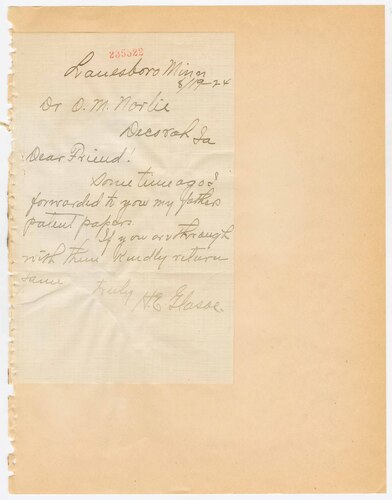 235522
Lanesboro Minn
8/19-24
Dr O. M. Norlie
Decorah Ia
Dear Friend!
Some time ago I
forwarded to you my fathers
patent papers.
If you are through
with them Kindly return
same
truly H.E. Glasoe.